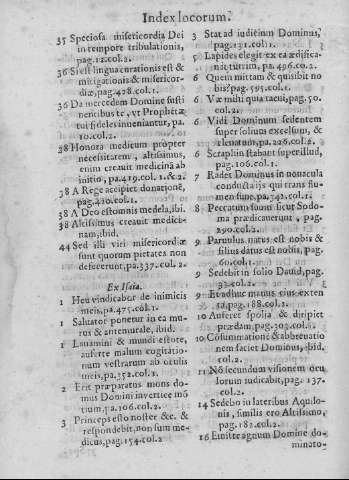 Index locorum.
35 Speciosa misericordia Dei
in tempore tribulationis,
pag.12.col.2.
36 Si est lingua curationis est &
mitigationis & misericor-
diæ, pag.428.col.1.
36 Da mercedem Domine susti
nentibus te, vt Prophetæ
tui fideles inueniantur, pa.
10.col.2.
38 Honora medicum propter
necessitatem, altissimus,
enim creauit medicinã ab
initio, pa.419.col.1.&2.
38 A Rege accipiet donationẽ,
pag.420.col.1.
38 A Deo est omnis medela, ibi.
38 Altissimus creauit medici-
nam, ibid.
44 Sed illi viri misericordiæ
sunt quorum pietates non
defecerunt, pa.337.col.2.
Ex Isaia.
1 Heu vindicabor de inimicis
meis, pa.475.col.1.
1 Saluator ponetur in ea mu-
rus & antemurale, ibid.
1 Lauamini & mundi estote,
auferte malum cogitatio-
num vestrarum ab oculis
meis, pa.352.col.1.
2 Erit præparatus mons do-
mus Domini in vertice mõ
tium, pa.106.col.2.
3 Princeps esto noster &c. &
respondebit, non sum me-
dicus, pag.154.col.2
3 Stat ad iuditium Dominus,
pag.131.col.1.
5 Lapides elegit ex ea ædifica-
uit turrim, pa.496.co.2.
6 Quem mittam & quis ibit no
bis? pag.595.col.1.
6 Væ mihi quia tacui, pag.50.
col.2.
6 Vidi Dominum sedentem
super solium excelsum, &
eleuatum, pa.226.col.2.
6 Seraphin stabant super illud,
pag.106.col.1.
7 Radet Dominus in nouacula
conducta ijs qui trans flu-
men sunt, pa.342.col.1.
8 Peccatum suum sicut Sodo-
ma prædicauerunt, pag.
290.col.2.
9 Paruulus natus est nobis &
filius datus est nobis, pag.
60.col.1.
9 Sedebit in solio Dauid, pag.
33.col.2.
9 Et adhuc manus eius exten
sa, pag.188.col.1.
10 Auferet spolia & diripiet
prædam, pag.303.col.2.
10 Cõsummationẽ & abbreuiatio
nem faciet Dominus, ibid.
col.2.
11 Nõ secundum visionem ocu
lorum iudicabit, pag. 137.
col.2.
14 Sedebo in lateribus Aquilo-
nis, similis ero Altissimo,
pag.182.col.2.
16 Emitte agnum Domine do-
minato-